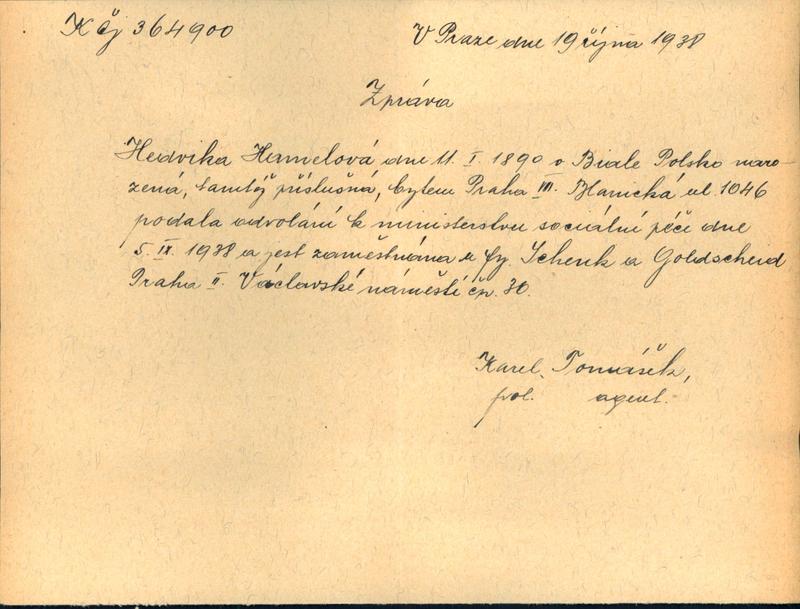 K čj 364900
V Praze dne 19 října 1938
Zpráva
Hedvika Hamelová dne 11. I. 1890 v Biale Polsko naro-
zená, tamtéž příslušná, bytem Praha Blanická ul. 1046
podala odvolání k ministerstvu sociální péče dne
5. IX. 1938 a jest zaměstnána u fy. Schenk a Goldscheid
Praha II. Václavské náměstí čp. 30.
Karel Tomášek,
pol. agent.